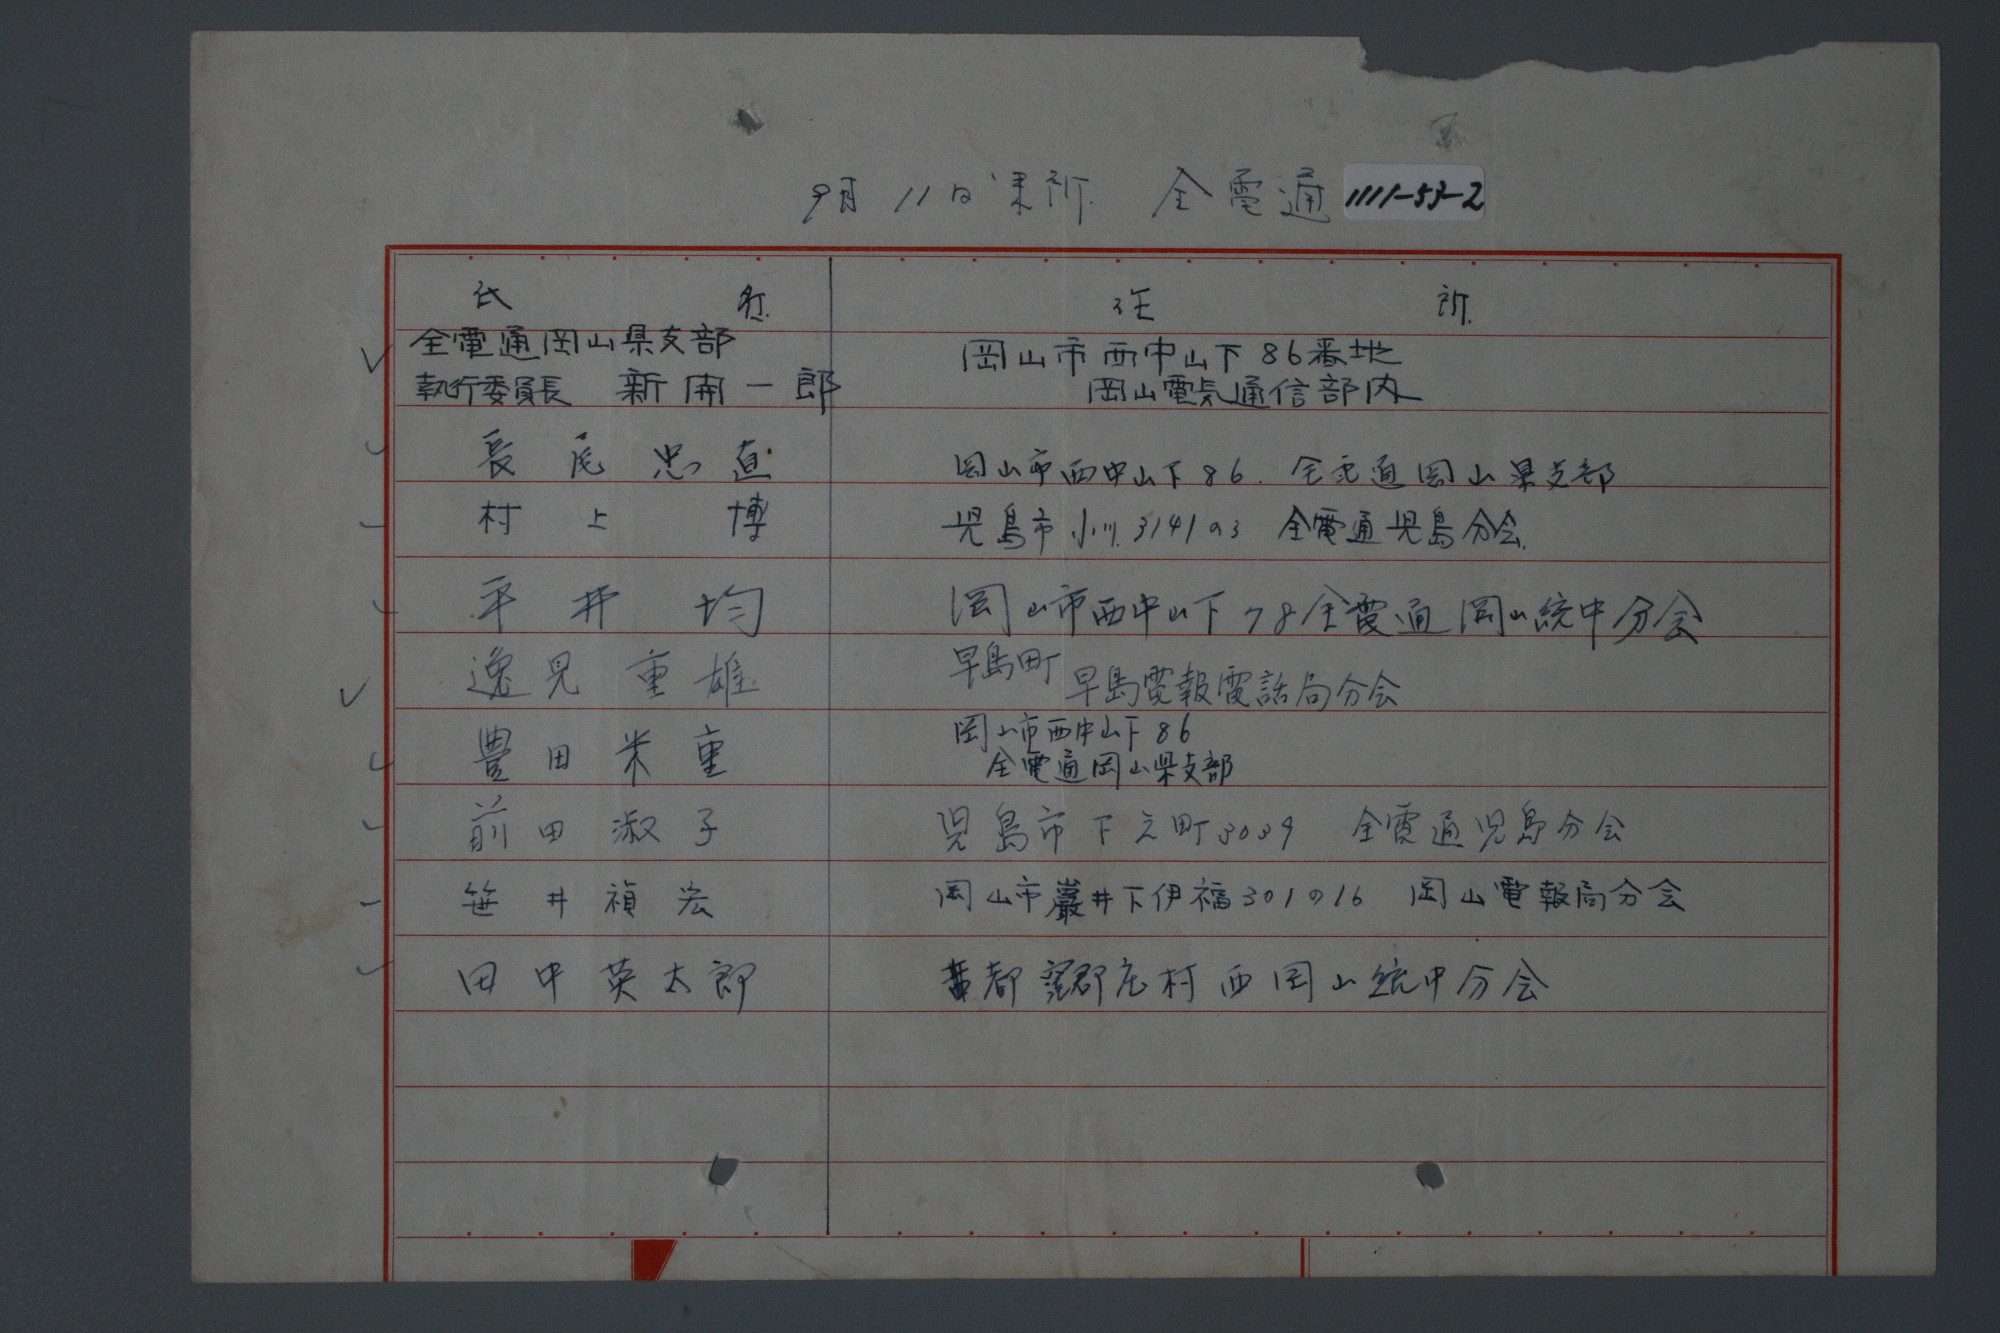 9月11日来所 全電通 1111-53-2
氏 名 住 所
全電通岡山県支部
執行委員長 新開一郎
岡山市西中山下86番地
岡山電気通信部内
長尾忠直 岡山市西中山下86. 全電通岡山県支部
村上 博 児島市小川3141の3 全電通児島分会
平井 均 岡山市西中山下78全電通岡山統中分会
逸見重雄 早島町 早島電報電話局分会
豊田米重 岡山市西中山下86
全電通岡山県支部
前田淑子 児島市下之町3039 全電通児島分会
笹井禎宏 岡山市巌井下伊福301の16 岡山電報局分会
田中英太郎 都窪郡庄村西岡山統中分会